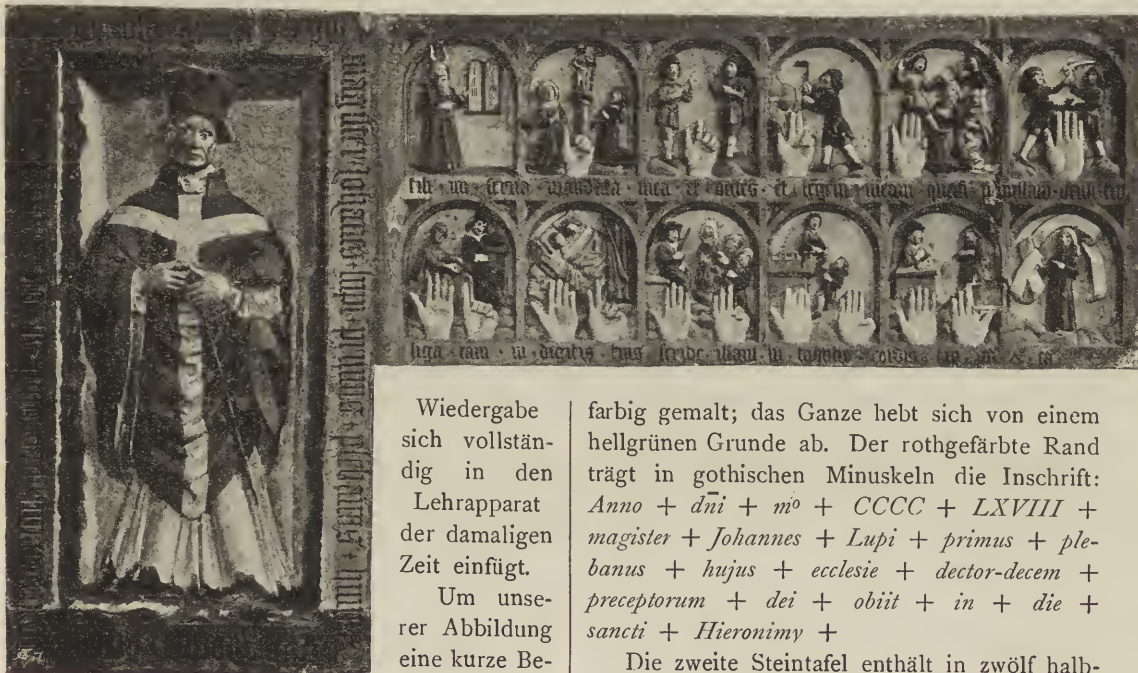 fili · mi · serva · mandata · mea · et · et · legem · meam · quasi
liga · eam · in · digitis · tuis · scribe · illam · in · tabulis
Wiedergabe
sich vollstän-
dig in den
Lehrapparat
der damaligen
Zeit einfügt.
Um unse-
rer Abbildung
eine kurze Be-
farbig gemalt; das Ganze hebt sich von einem
hellgrünen Grunde ab. Der rothgefärbte Rand
trägt in gothischen Minuskeln die Inschrift:
Anno + dn̄i + mº + CCCC + LXVIII +
magister + Johannes + Lupi + primus + ple-
banus + hujus + ecclesie + dector-decem +
preceptorum + dei + obiit + in + die +
sancti + Hieronimy +
Die zweite Steintafel enthält in zwölf halb-